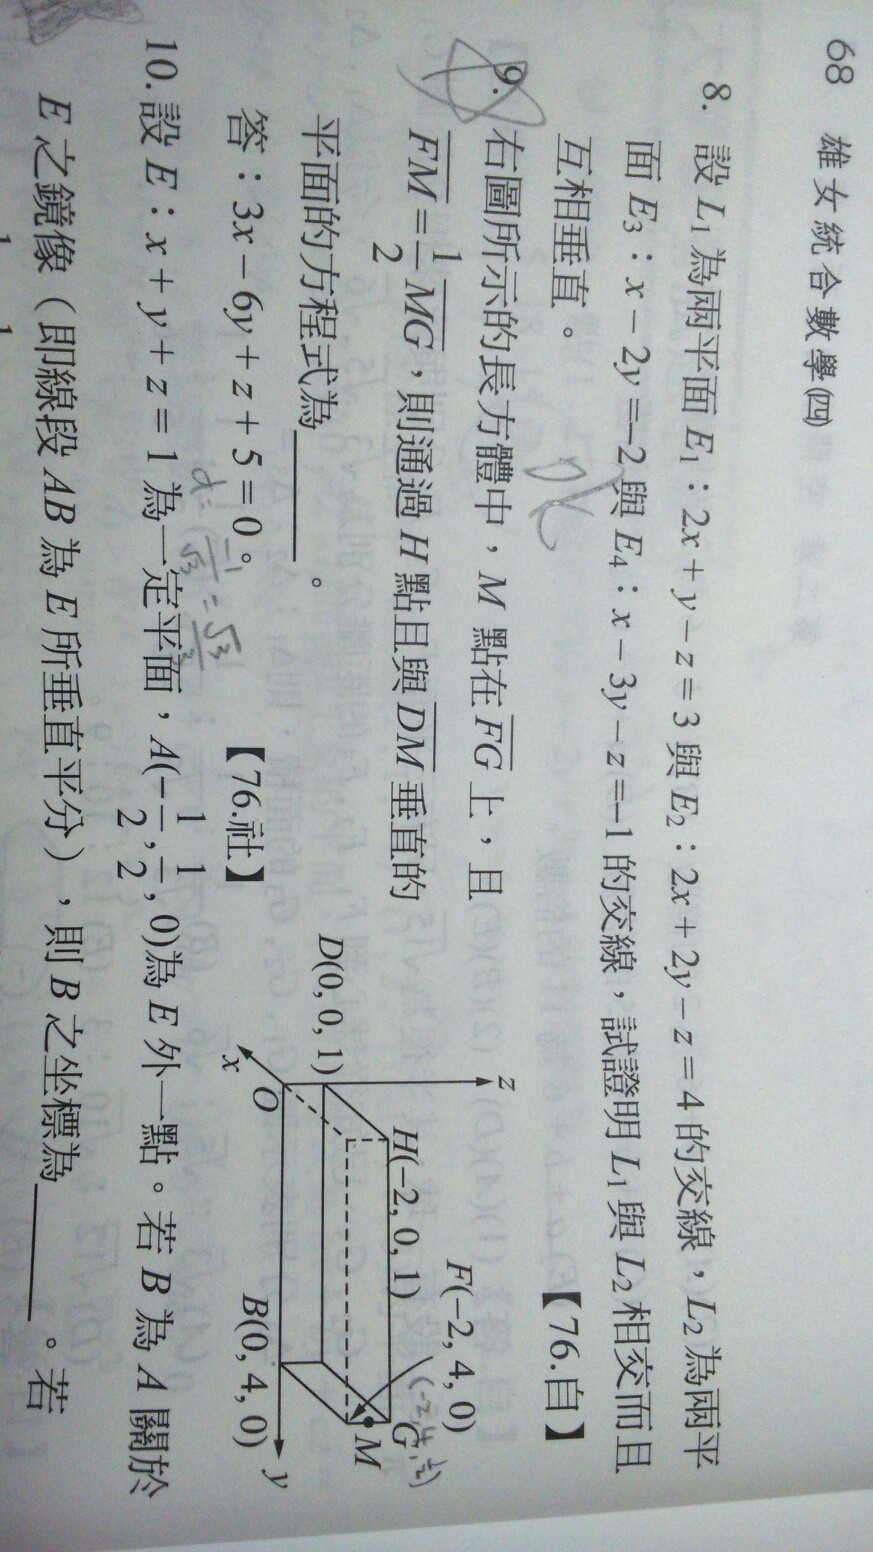 68 雄女統合數學㈣
8. 設 L₁ 為兩平面 E₁：2x + y − z = 3 與 E₂：2x + 2y − z = 4 的交線，L₂ 為兩平
面 E₃：x − 2y = −2 與 E₄：x − 3y − z = −1 的交線，試證明 L₁ 與 L₂ 相交而且
互相垂直。 【76.自】
9. 右圖所示的長方體中，M 點在 FG 上，且
FM = 1/2 MG，則通過 H 點且與 DM 垂直的
平面的方程式為______。
答：3x − 6y + z + 5 = 0。 【76.社】
z
H(−2, 0, 1)
F(−2, 4, 0)
D(0, 0, 1)
G
M
O
x
B(0, 4, 0)
y
10. 設 E：x + y + z = 1 為一定平面，A(−1/2, 1/2, 0)為 E 外一點。若 B 為 A 關於
E 之鏡像（即線段 AB 為 E 所垂直平分），則 B 之坐標為______。若